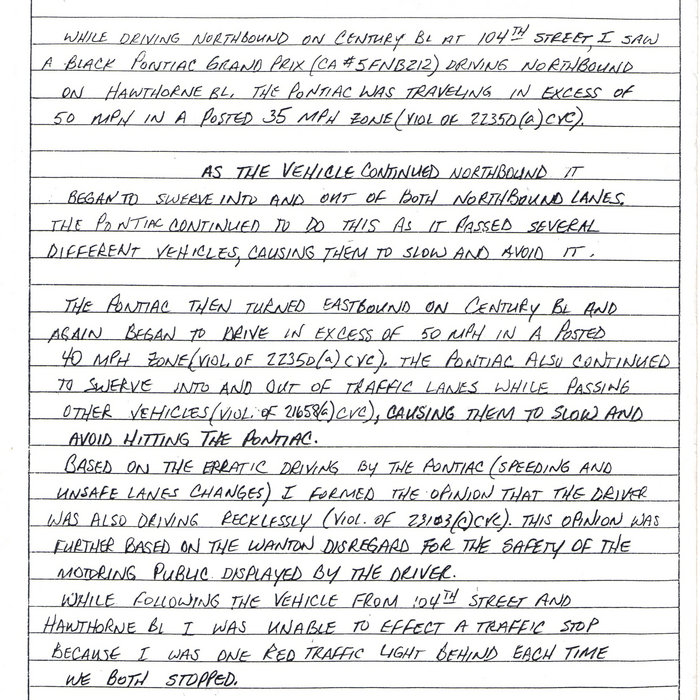 WHILE DRIVING NORTHBOUND ON CENTURY BL AT 104TH STREET, I SAW
A BLACK PONTIAC GRAND PRIX (CA #5FNB212) DRIVING NORTHBOUND
ON HAWTHORNE BL. THE PONTIAC WAS TRAVELING IN EXCESS OF
50 MPH IN A POSTED 35 MPH ZONE (VIOL OF 22350(a) CVC).
AS THE VEHICLE CONTINUED NORTHBOUND IT
BEGAN TO SWERVE INTO AND OUT OF BOTH NORTHBOUND LANES.
THE PONTIAC CONTINUED TO DO THIS AS IT PASSED SEVERAL
DIFFERENT VEHICLES, CAUSING THEM TO SLOW AND AVOID IT.
THE PONTIAC THEN TURNED EASTBOUND ON CENTURY BL AND
AGAIN BEGAN TO DRIVE IN EXCESS OF 50 MPH IN A POSTED
40 MPH ZONE (VIOL. OF 22350(a) CVC). THE PONTIAC ALSO CONTINUED
TO SWERVE INTO AND OUT OF TRAFFIC LANES WHILE PASSING
OTHER VEHICLES (VIOL. OF 21658(a) CVC), CAUSING THEM TO SLOW AND
AVOID HITTING THE PONTIAC.
BASED ON THE ERRATIC DRIVING BY THE PONTIAC (SPEEDING AND
UNSAFE LANES CHANGES) I FORMED THE OPINION THAT THE DRIVER
WAS ALSO DRIVING RECKLESSLY (VIOL. OF 23103(c) CVC). THIS OPINION WAS
FURTHER BASED ON THE WANTON DISREGARD FOR THE SAFETY OF THE
MOTORING PUBLIC DISPLAYED BY THE DRIVER.
WHILE FOLLOWING THE VEHICLE FROM 104TH STREET AND
HAWTHORNE BL I WAS UNABLE TO EFFECT A TRAFFIC STOP
BECAUSE I WAS ONE RED TRAFFIC LIGHT BEHIND EACH TIME
WE BOTH STOPPED.